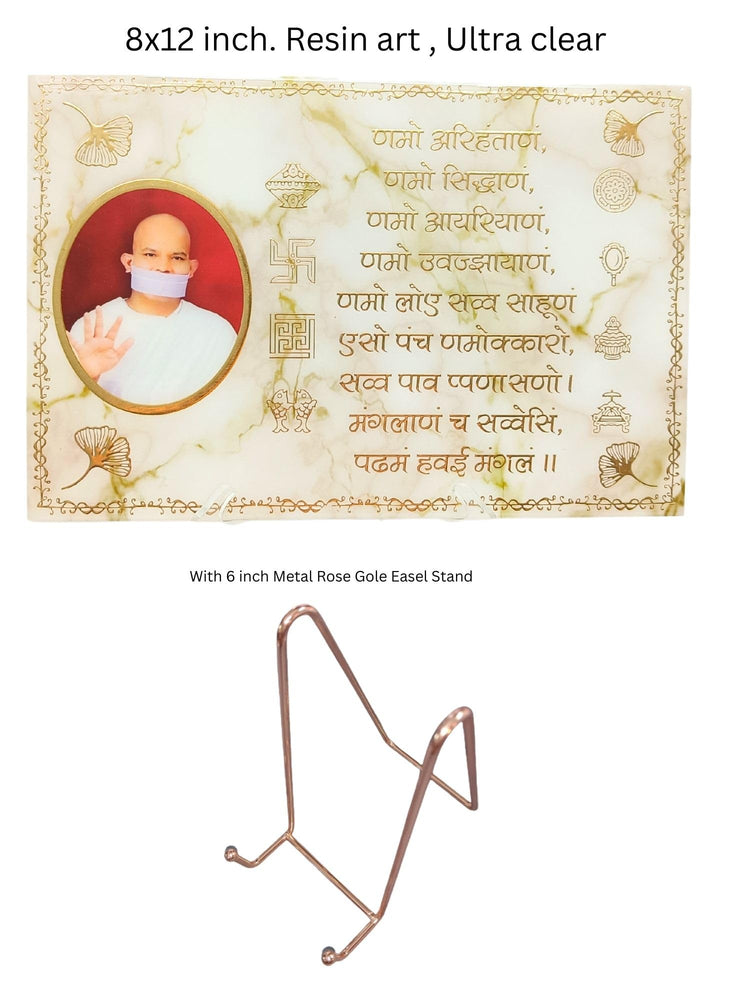 8x12 inch. Resin art , Ultra clear
णमो अरिहंताणं,
णमो सिद्धाणं,
णमो आयरियाणं,
णमो उवज्झायाणं,
णमो लोए सव्व साहूणं
एसो पंच णमोक्कारो,
सव्व पाव प्पणासणो।
मंगलाणं च सव्वेसिं,
पढमं हवई मंगलं ।।
With 6 inch Metal Rose Gole Easel Stand